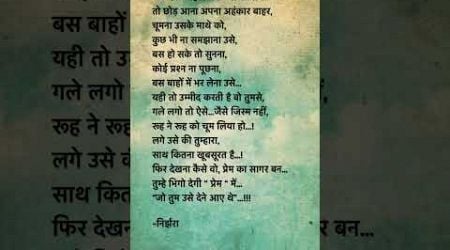 तो छोड़ आना अपना अहंकार बाहर,
चूमना उसके माथे को,
कुछ भी ना समझाना उसे,
बस हो सके तो सुनना,
कोई प्रश्न ना पूछना,
बस बाहों में भर लेना उसे...
यही तो उम्मीद करती है वो तुमसे,
गले लगो तो ऐसे...जैसे जिस्म नहीं,
रूह ने रूह को चूम लिया हो...!
लगे उसे की तुम्हारा,
साथ कितना खूबसूरत है...!
फिर देखना कैसे वो, प्रेम का सागर बन...
तुम्हे भिगो देगी " प्रेम " में...
"जो तुम उसे देने आए थे"...!!!
-निर्झरा